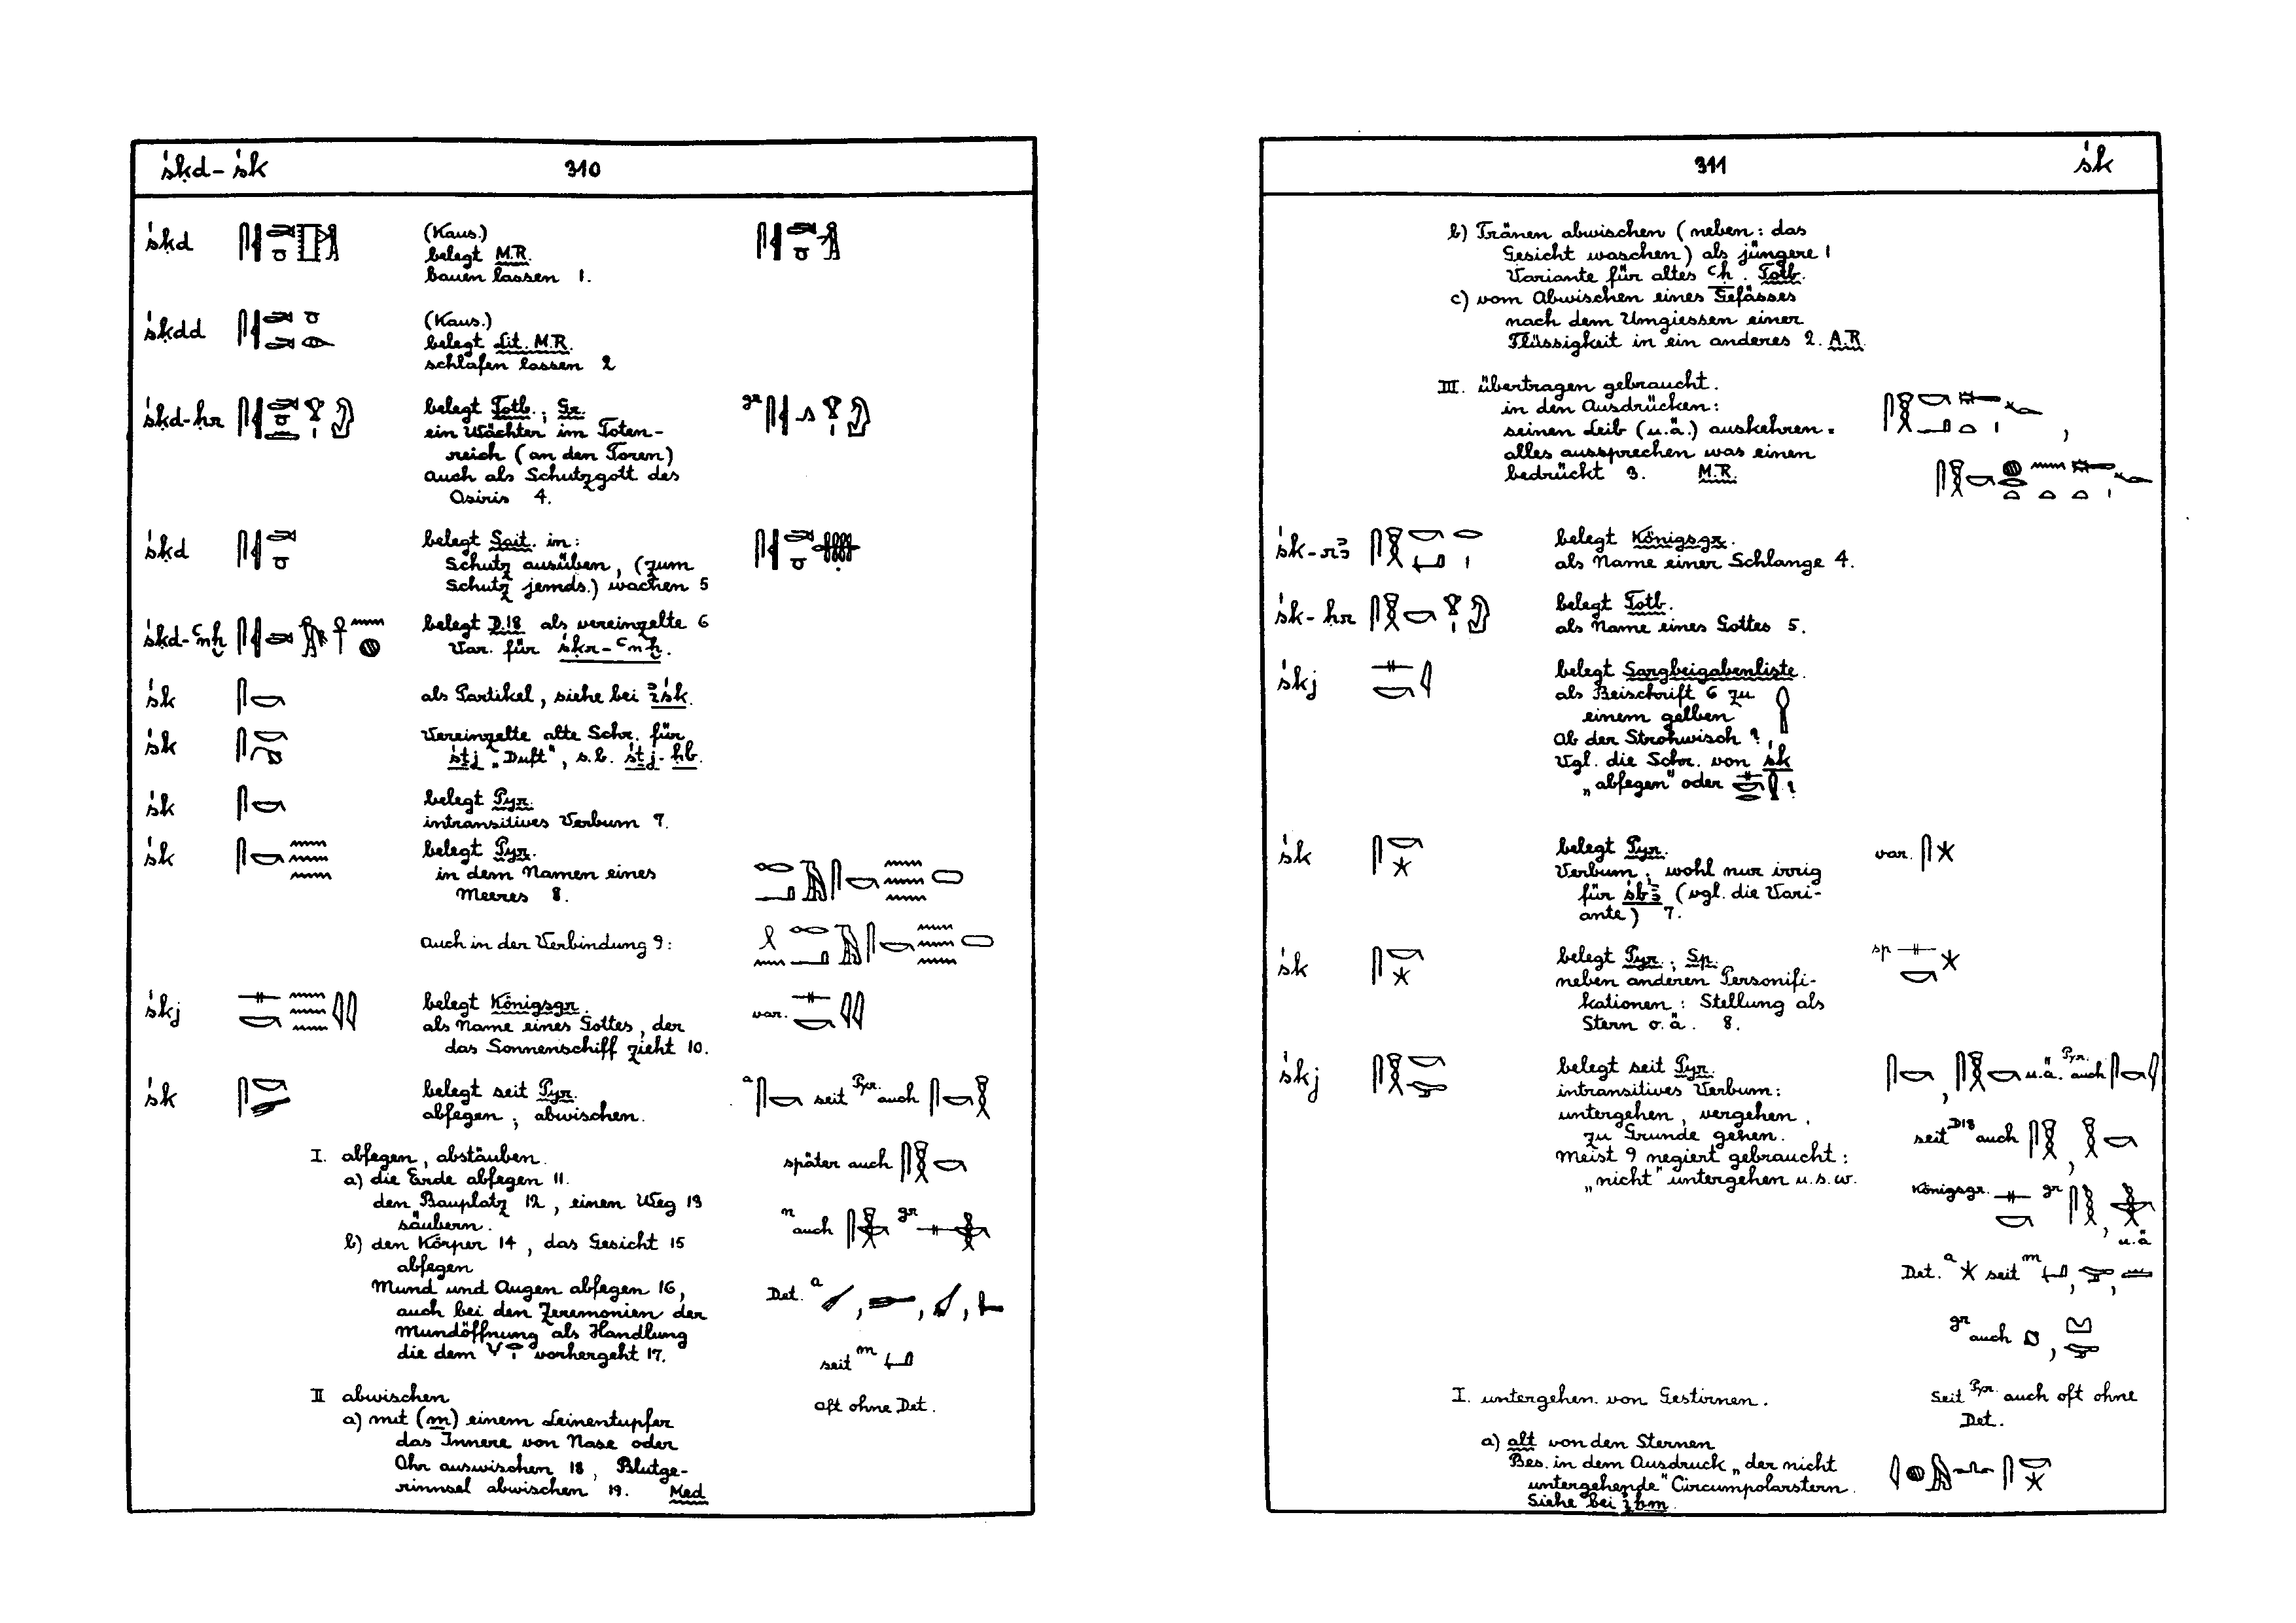 śḳd – śk 310
śḳd (Kaus.)
belegt M.R.
bauen lassen 1.
śḳdd (Kaus.)
belegt Lit. M.R.
schlafen lassen 2
śḳd-ḥr belegt Totb.; Gr. gr
ein Wächter im Toten-
reich (an den Toren)
auch als Schutzgott des
Osiris 4.
śḳd belegt Sait. im:
Schutz ausüben, (zum
Schutz jemds.) wachen 5
śḳd-ꜥnḫ belegt D.18 als vereinzelte 6
Var. für śḳr-ꜥnḫ.
śk als Partikel, siehe bei ꞽśk.
śk Vereinzelte alte Schr. für
śṯj „Duft", s.b. śṯj-ḥb.
śk belegt Pyr.
intransitives Verbum 7.
śk belegt Pyr.
in dem Namen eines
Meeres 8.
auch in der Verbindung 9:
śkj belegt Königsgr.
als Name eines Gottes, der var.
das Sonnenschiff zieht 10.
śk belegt seit Pyr. a seit Pyr. auch
abfegen; abwischen.
I. abfegen, abstäuben. später auch
a) die Erde abfegen 11.
den Bauplatz 12, einen Weg 13
säubern. n auch gr
b) den Körper 14, das Gesicht 15
abfegen
Mund und Augen abfegen 16, Det. a , , ,
auch bei den Zeremonien der
Mundöffnung als Handlung
die dem vorhergeht 17. seit m
II abwischen oft ohne Det.
a) mit (m) einem Leinentupfer
das Innere von Nase oder
Ohr auswischen 18, Blutge-
rinnsel abwischen 19. Med
311 śk
b) Tränen abwischen (neben: das
Gesicht waschen) als jüngere 1
Variante für altes ꜥḥ. Totb.
c) vom Abwischen eines Gefässes
nach dem Umgiessen einer
Flüssigkeit in ein anderes 2. A.R.
III. übertragen gebraucht.
in den Ausdrücken:
seinen Leib (u.ä.) auskehren =
alles aussprechen was einen
bedrückt 3. M.R.
śk-rꜣ belegt Königsgr.
als Name einer Schlange 4.
śk-ḥr belegt Totb.
als Name eines Gottes 5.
śkj belegt Sargbeigabenliste.
als Beischrift 6 zu
einem gelben
Ob der Strohwisch?,
Vgl. die Schr. von śk
„abfegen" oder ?
śk belegt Pyr. var.
Verbum; wohl nur irrig
für śbꜣ (vgl. die Vari-
ante) 7.
śk belegt Pyr.; Sp. sp
neben anderen Personifi-
kationen: Stellung als
Stern o.ä. 8.
śkj belegt seit Pyr. , u.ä. Pyr. auch
intransitives Verbum:
untergehen, vergehen,
zu Grunde gehen. seit D18 auch ,
Meist 9 negiert gebraucht:
„nicht" untergehen u.s.w.
Königsgr. gr , u.ä
Det. a seit m , ,
gr auch ,
I. untergehen. von Gestirnen. Seit Pyr. auch oft ohne
Det.
a) alt von den Sternen
Bes. in dem Ausdruck „der nicht
untergehende" Circumpolarstern.
Siehe bei ꞽḫm.